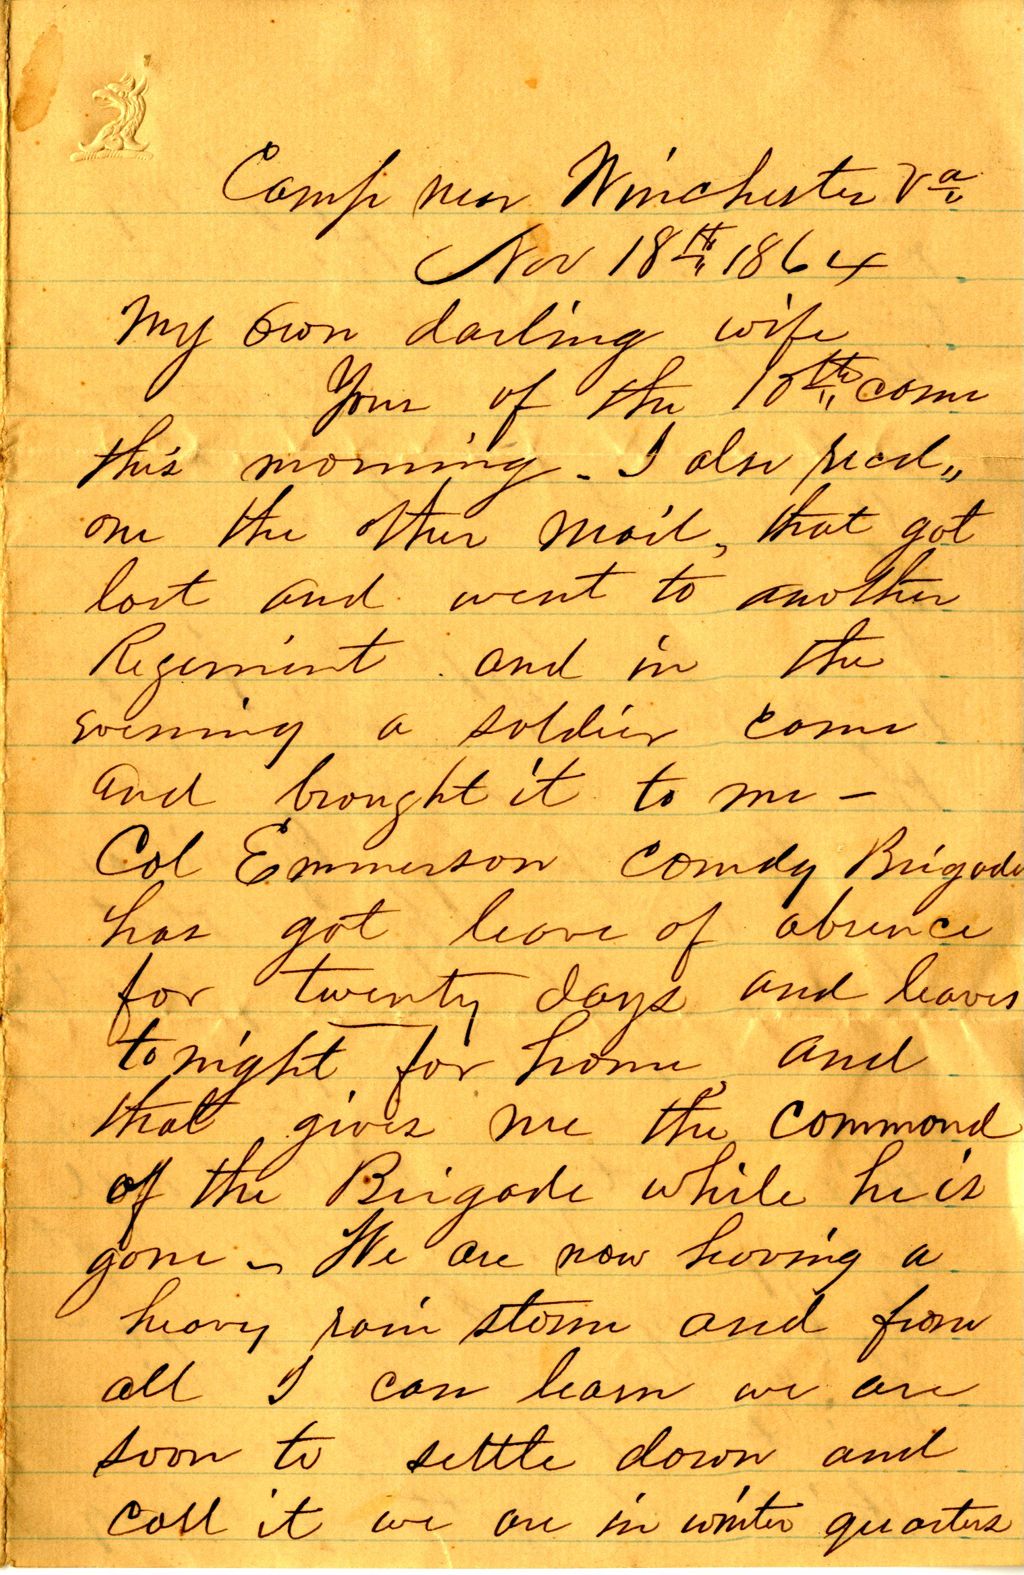 Camp near Winchester Va
Nov 18th 1864
My own darling wife
Your of the 10th come
this morning - I also recd,,
one the other mail, that got
lost and went to another
Regement and in the
evening a soldier come
and brought it to me -
Col Emmerson comdg Brigade
has got leave of absence
for twenty days and leaves
to night for home, and
that gives me the command
of the Brigade while he is
gone - We are now having a
heavy rain storm and from
all I can learn we are
soon to settle down and
call it we are in winter quarters